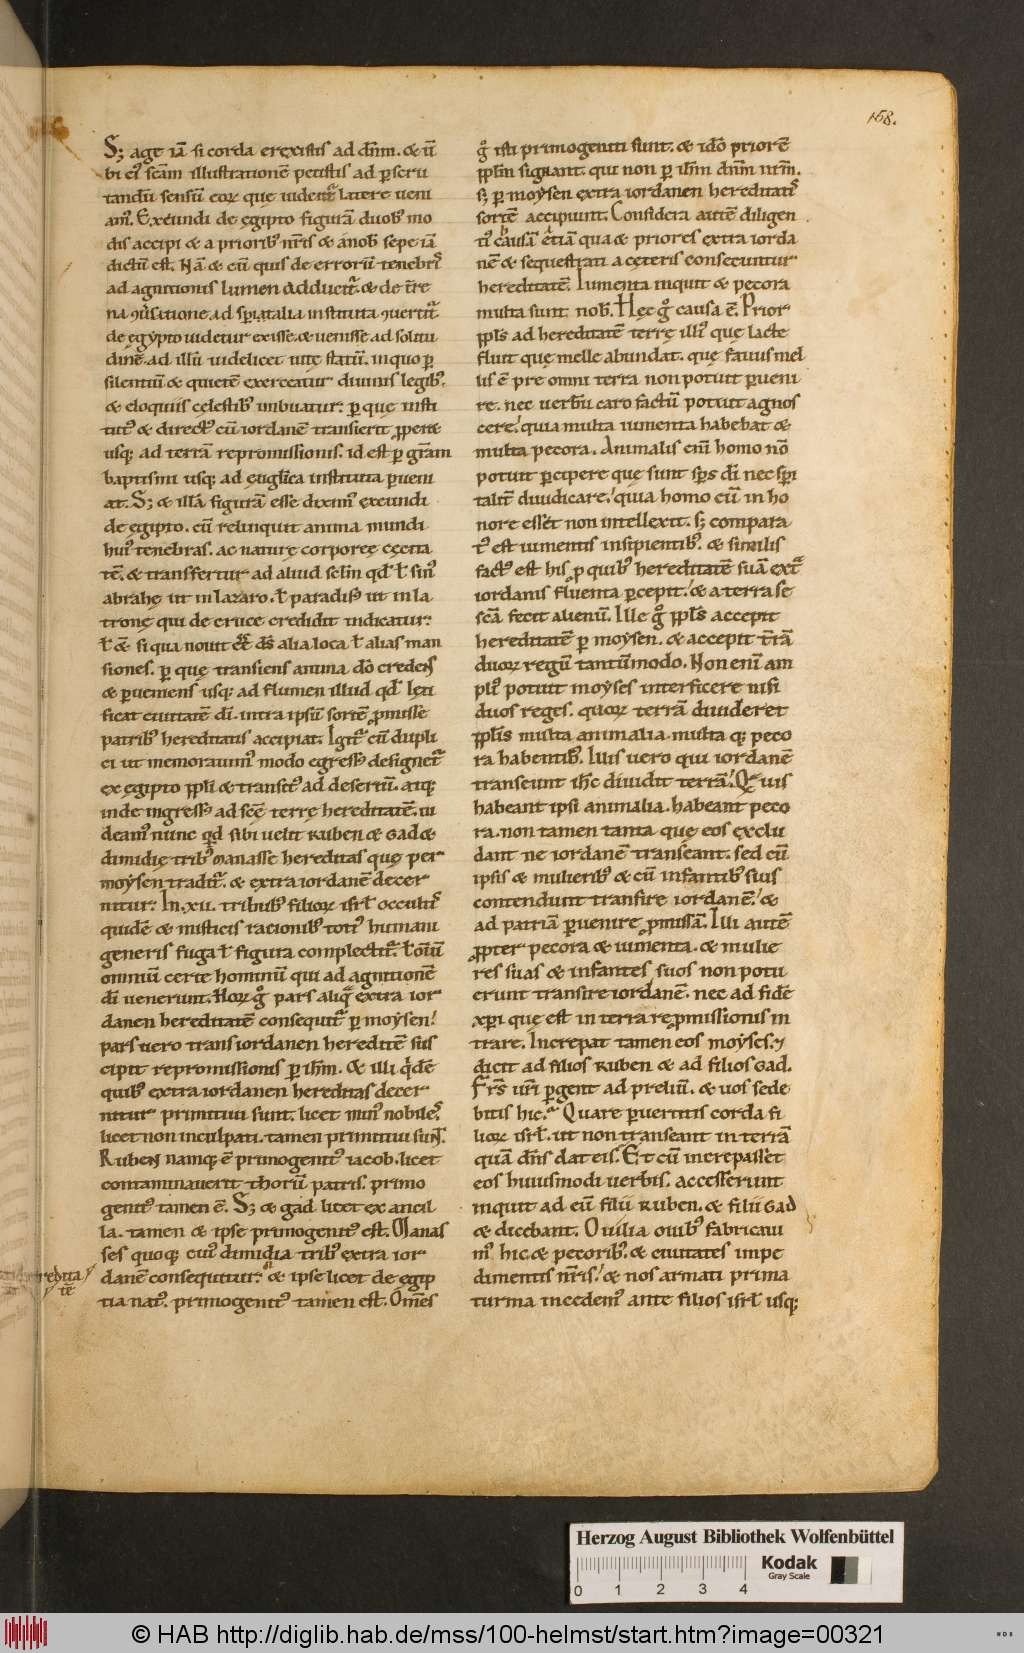 168.
S; age iā si corda erexistis ad dn̄m. & ū
bi ei᷒ sc̄am illustrationē petistis ad pscru
tandū sensū eoꝝ quę uident̄ latere ueni
am᷒. Exeundi de ęgipto figurā duob᷒ mo
dis accipi & a priorib᷒ nr̄is & a nob̄ sepe iā
dictū est. Nā & cū quis de errorū tenebris
ad agnitionis lumen adducit̄. & de t̄re
na ꝯuersatione ad sp̄italia instituta ꝯuertit̄
de ęgypto uidetur exisse. & uenisse ad solitu
dinē. ad illū uidelicet uitę statū. in quo ꝑ
silentiū & quietē exerceatur diuinis legib᷒.
& eloquiis cęlestib᷒ imbuatur. ꝑ quę insti
tut᷒ & direct᷒ cū iordanē transierit ꝓperæ
usq; ad terrā repromissionis. id est ꝑ gr̄am
baptismi usq; ad euglica instituta ꝑueni
at. S; & illā figurā esse dixim᷒ exeundi
de ęgipto. cū relinquit anima mundi
hui᷒ tenebras. ac naturę corporeę cęcita
tē. & transfertur ad aliud sclm̄ qd̄ ł sin᷒
abrahę ut in lazaro. ł paradis᷒ ut in la
trone qui de cruce credidit indicatur.
ł &̄ si qua nouit ēē ds̄ alia loca ł alias man
siones. ꝑ quę transiens anima dō credens
& ꝑueniens usq; ad flumen illud qd̄ lęti
ficat ciuitatē dī. intra ipsū sortē ꝓmissę
patrib᷒ hereditatis accipiat. Igit̄ cū dupli
ci ut memorauim᷒ modo egress᷒ designet̄
ex egipto ppl̄i & transit᷒ ad desertū. atq;
inde ingress᷒ ad scę̄ terrę hereditatē. ui
deam᷒ nunc qd̄ sibi uelit Ruben & Gad &
dimidię trib᷒ Manasse hereditas quę per
moysen tradit̄. & extra iordanē decer
nitur. In .xii. tribub᷒ filioꝝ isrł occultis
quidē & misticis racionib᷒ toti᷒ humani
generis fuga ł figura complectit̄. ł om̄iū
omniū certe hominū qui ad agnitionē
dī uenerunt. Hoꝝ g̊ pars aliqa extra ior
danen hereditatē consequit̄ ꝑ moysen.
pars uero trans iordanen hereditē sus
cipit repromissionis ꝑ ihm̄. & illi qdē
quib᷒ extra iordanen hereditas decer
nitur primitiui sunt. licet min᷒ nobiles.
licet non inculpati. tamen primitiui sunt.
Ruben namq; ē primogenit᷒ iacob. licet
contaminauerit thorū patris. primo
genit᷒ tamen ē. S; & gad licet ex ancil
la. tamen & ipse primogenit᷒ est. Manas
ses quoq; cui᷒ dimidia trib᷒ extra ior
danē consequitur. & ipse licet de egip
tia nat᷒. primogenit᷒ tamen est. Om̄s
redita
tē
g̊ isti primogeniti sunt. & idō priorē
ppl̄m signant. qui non ꝑ ihm̄ dn̄m nr̄m.
s; ꝑ moysen extra iordanen hereditatis
sortē accipiunt. Considera autē diligen
ti᷒ causā etiā qua & priores extra iorda
nē & sequestrati a cęteris consecuntur
hereditatē. Iumenta inquit & pecora
multa sunt nob̄. Hęc g̊ causa ē. Prior
ppl̄s ad hereditatē terrę illi᷒ quę lacte
fluit quę melle abundat. quę fauus mel
lis ē pre omni terra non potuit ꝑueni
re. nec uerbū caro factū potuit agnos
cere. quia multa iumenta habebat &
multa pecora. Animalis enī homo nō
potuit ꝑcipere quę sunt sps̄ dī nec sp̄i
talit̄ diiudicare. quia homo cū in ho
nore esset non intellexit. s; compara
t᷒ est iumentis insipientib᷒. & similis
fact᷒ est his ꝓ quib᷒ hereditatē suā ext̄
iordanis fluenta ꝑcepit. & a terra se
sc̄ā fecit alienū. Ille g̊ ppl̄s accepit
hereditatē ꝑ moysen. & accepit t̄rā
duoꝝ regū tantūmodo. Non enī am
pli᷒ potuit moyses interficere nisi
duos reges. quoꝝ terrā diuideret
ppl̄is multa animalia. multa q; peco
ra habentib᷒. Illis uero qui iordanē
transeunt ihc̄ diuidit terrā. Quis
habeant ipsi animalia. habeant peco
ra. non tamen tanta quę eos exclu
dant ne iordanē transeant. sed cū
ipsis & mulierib᷒ & cū infantib᷒ suis
contendunt transire iordanē. &
ad patriā ꝑuenire ꝓmissā. Illi autē
ꝓpter pecora & iumenta. & mulie
res suas & infantes suos non potu
erunt transire iordanē. nec ad fidē
xp̄i quę est in terra repromissionis in
trare. Increpat tamen eos moyses. ⁊
dicit ad filios Ruben & ad filios Gad.
Frs̄ ur̄i ꝑgent ad preliū. & uos sede
bitis hic. Quare ꝑuertitis corda fi
lioꝝ isrł. ut non transeant in terrā
quā dn̄s dat eis. Et cū increpasset
eos huiusmodi uerbis. accesserunt
inquit ad eū filii Ruben. & filii Gad
& dicebant. Ouilia ouib᷒ fabricaui
m᷒ hic. & pecorib᷒. & ciuitates impe
dimentis nr̄is. & nos armati prima
turma incedem᷒ ante filios isrł usq;
Herzog August Bibliothek Wolfenbüttel
0 1 2 3 4
Kodak
Gray Scale
© HAB http://diglib.hab.de/mss/100-helmst/start.htm?image=00321